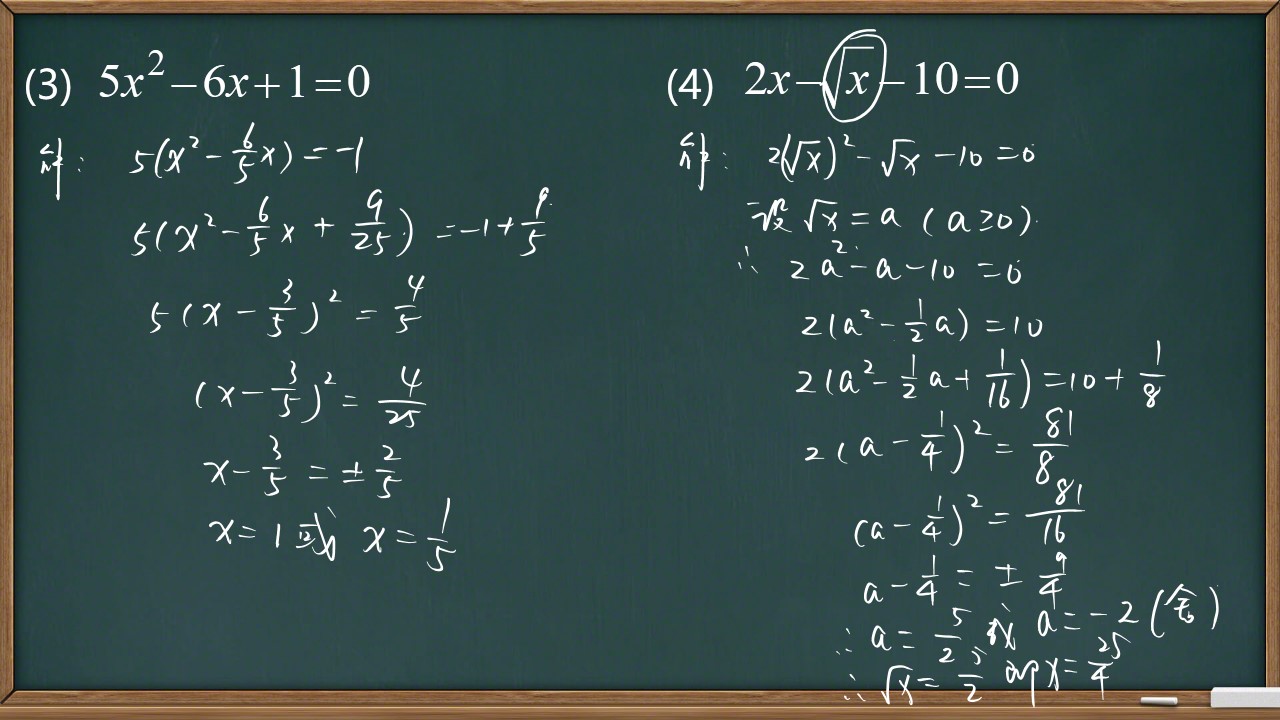 (3) 5x²−6x+1=0
解: 5(x²−6/5x)=−1
5(x²−6/5x+9/25)=−1+9/5
5(x−3/5)²=4/5
(x−3/5)²=4/25
x−3/5=±2/5
x=1或x=1/5
(4) 2x−√x−10=0
解: 2(√x)²−√x−10=0
设√x=a(a≥0).
∴ 2a²−a−10=0
2(a²−1/2a)=10
2(a²−1/2a+1/16)=10+1/8
2(a−1/4)²=81/8
(a−1/4)²=81/16
a−1/4=±9/4
∴a=5/2或a=−2(舍)
∴√x=5/2 即x=25/4